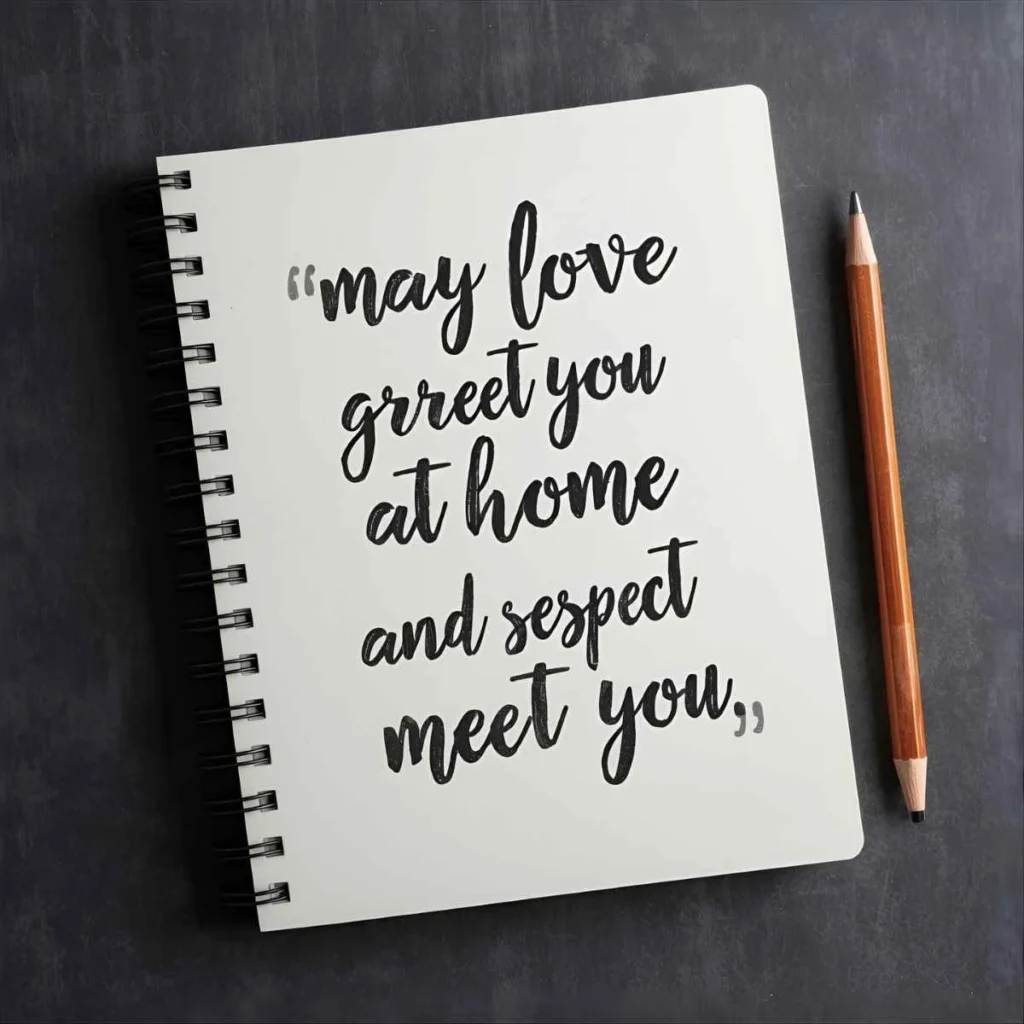 “may love
grreet you
at home
and sespect
meet you.„